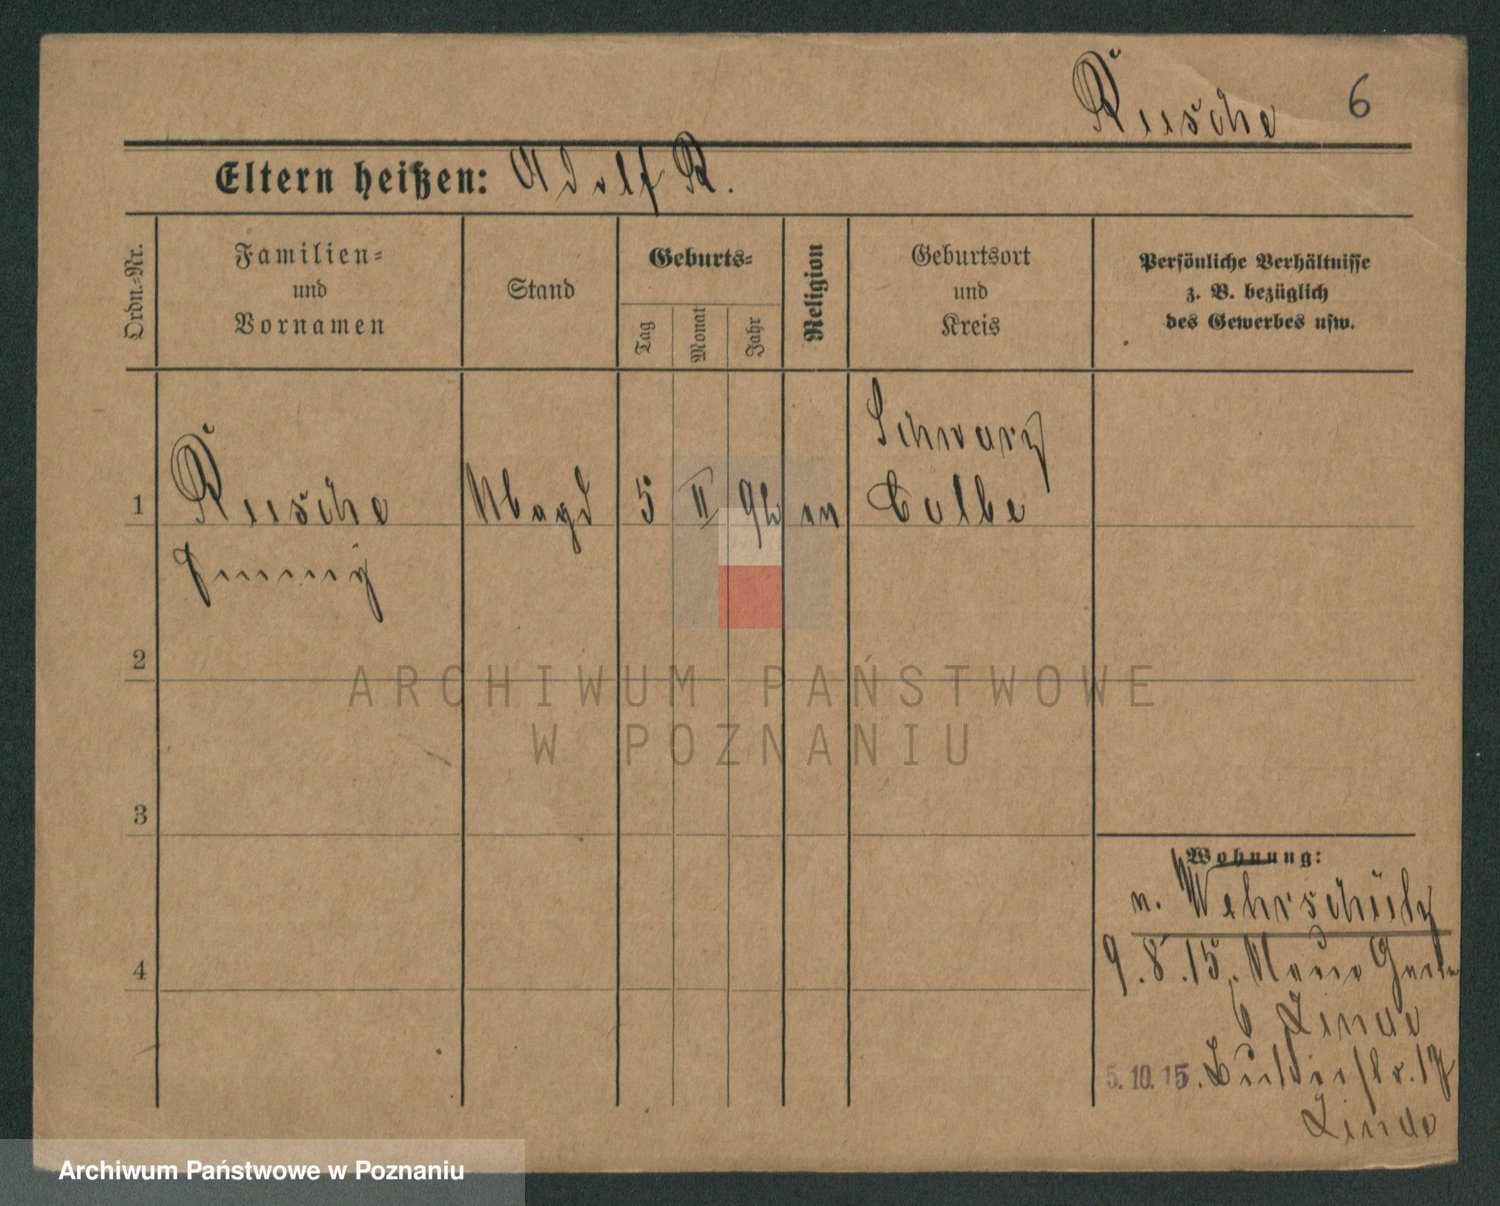 Rusche 6
Eltern heißen: Adolf R.
Ordn.-Nr.
Familien-
und
Vornamen
Stand
Geburts-
Tag
Monat
Jahr
Religion
Geburtsort
und
Kreis
Persönliche Verhältnisse
z. B. bezüglich
des Gewerbes usw.
Schwarz
1 Rusche Magd 5 II 92 Colbe
2
ARCHIWUM PAŃSTWOWE
W POZNANIU
3
Wohnung:
n. Wehrschütz
4
9.8.15.
6 Linde
5.10.15. 17
Linde
Archiwum Państwowe w Poznaniu